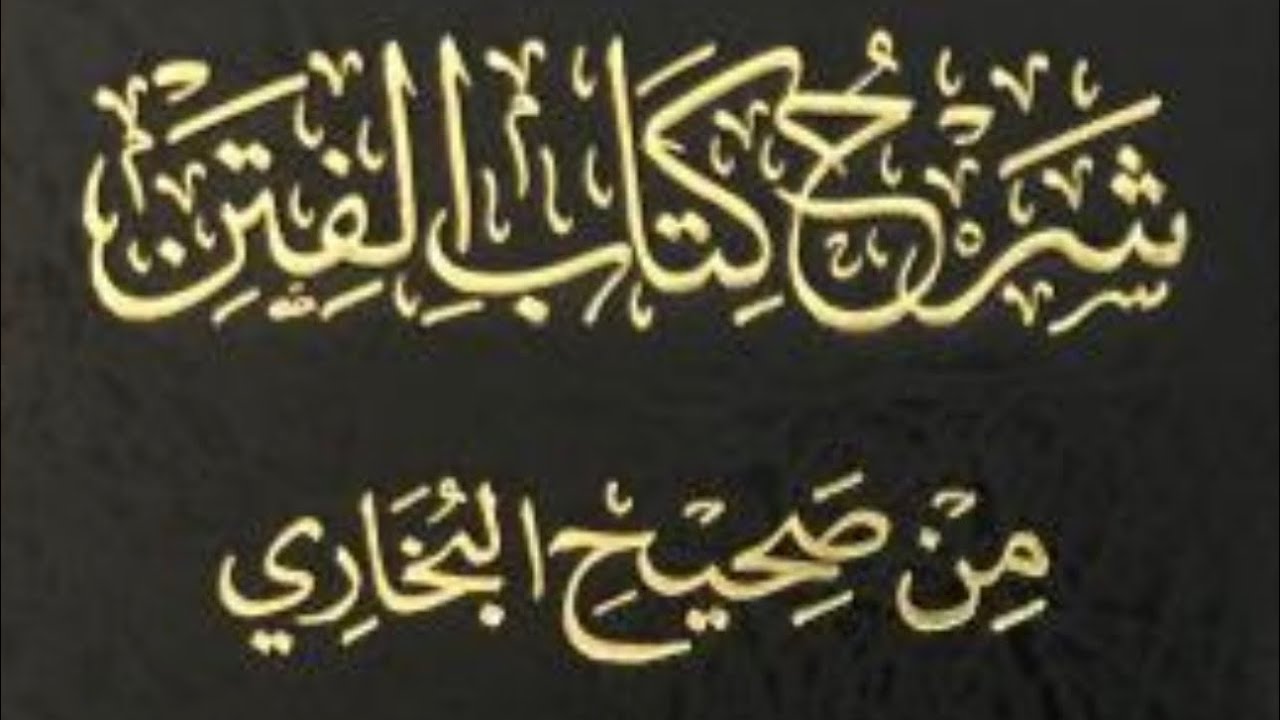 شَرْحُ كِتَابِ الفِتَنِ
مِنْ صَحِيْحِ البُخَارِي